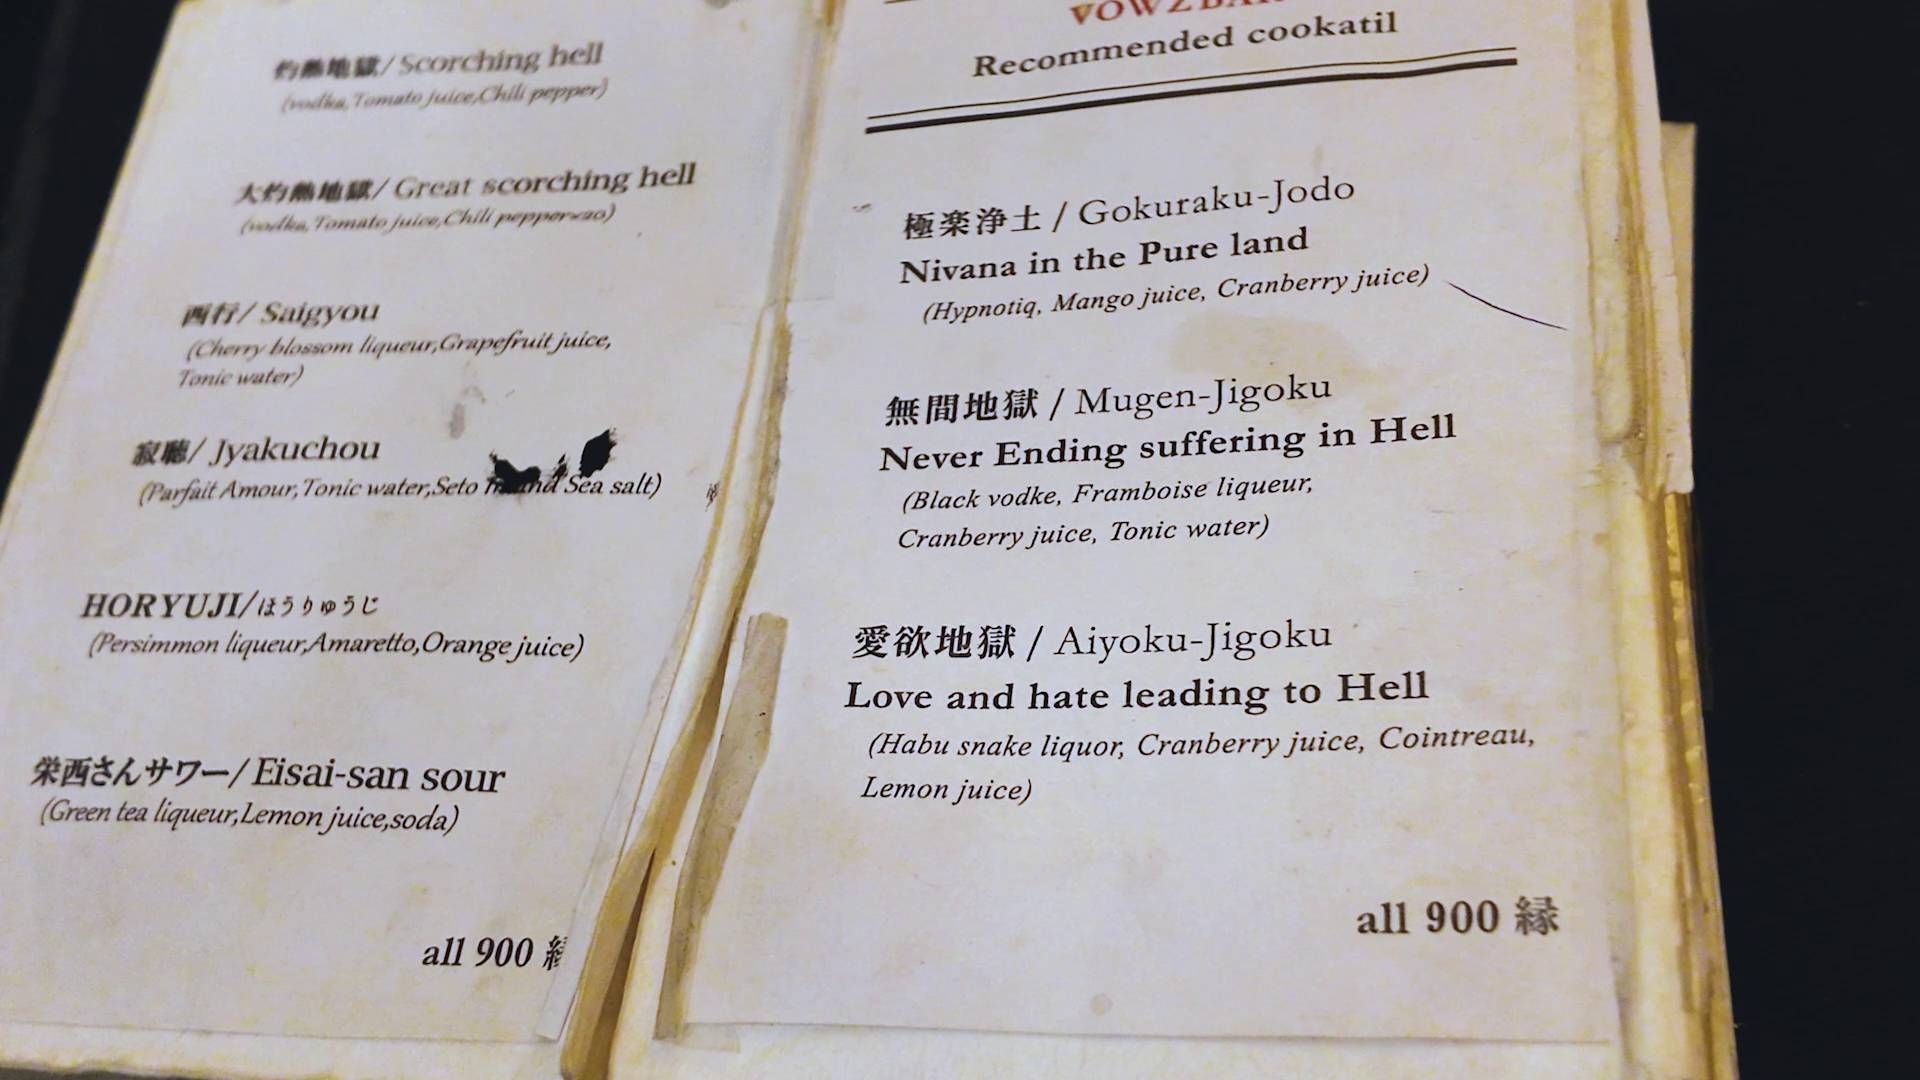 灼熱地獄/ Scorching hell
(vodka,Tomato juice,Chili pepper)
大灼熱地獄/ Great scorching hell
(vodka,Tomato juice,Chili pepper×20)
西行/ Saigyou
(Cherry blossom liqueur,Grapefruit juice,
Tonic water)
寂聴/ Jyakuchou
(Parfait Amour,Tonic water,Seto Sea salt)
HORYUJI/ほうりゅうじ
(Persimmon liqueur,Amaretto,Orange juice)
栄西さんサワー/ Eisai-san sour
(Green tea liqueur,Lemon juice,soda)
all 900
VOWZBAR
Recommended cookatil
極楽浄土 / Gokuraku-Jodo
Nivana in the Pure land
(Hypnotiq, Mango juice, Cranberry juice)
無間地獄 / Mugen-Jigoku
Never Ending suffering in Hell
(Black vodke, Framboise liqueur,
Cranberry juice, Tonic water)
愛欲地獄 / Aiyoku-Jigoku
Love and hate leading to Hell
(Habu snake liquor, Cranberry juice, Cointreau,
Lemon juice)
all 900 縁